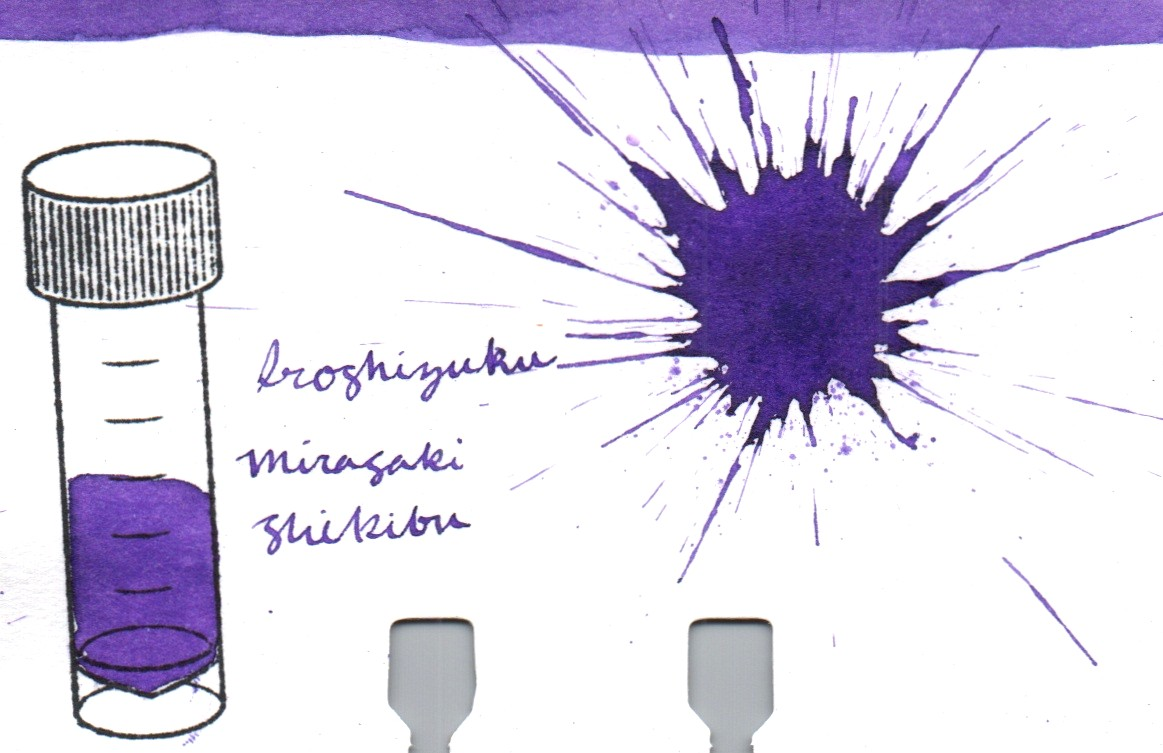 Iroshizuku
miragaki
Shikibu